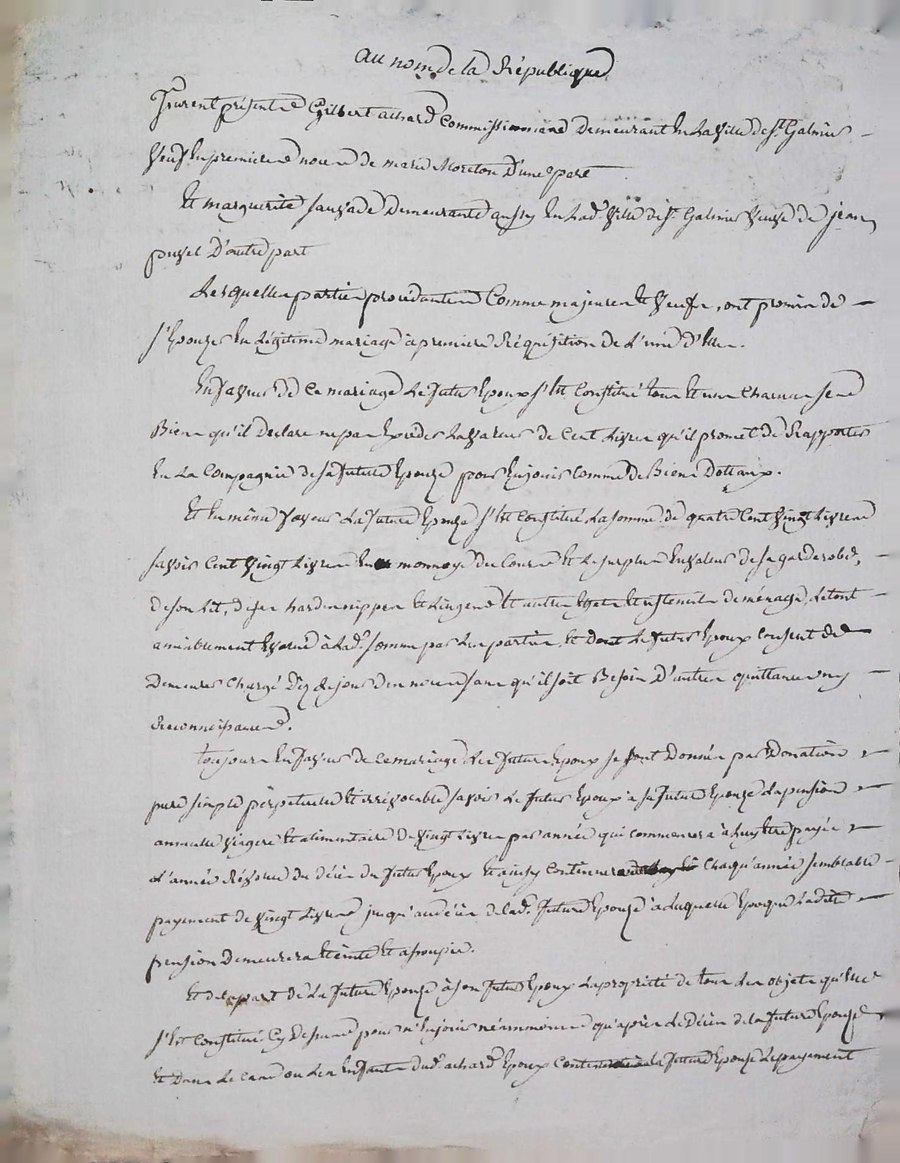 au nom de la République
furent présents Gilbert achard Commissionnaire Demeurant En La Ville de St. Galmier
Veuf En premieres noces de marie Moreton D'une part
Et marguerite sauvade Demeurante aussy En Lad. Ville de St. Galmier Veuve de jean
D'autre part
Lesquelles parties procédantes Comme majeures Et Veufs, ont promis de
s'Epouser En Légitime mariage à premiere Réquisition de L'une d'Elles.
En faveur de Ce mariage Le futur Epoux s'Est Constitué tous Et uns Chacuns ses
Biens qu'il Déclare ne pas Exceder La Valeur de Cent Livres qu'il promet de Rapporter
En La Compagnie de sa future Epouze pour En jouir Comme de Biens Dottaux.
Et En même faveur La future Epouze s'Est Constitué La somme de quatre Cent Vingt Livres
savoir Cent Vingt Livres En monnoye du Cours Et Le surplus En Valeur de sa garderobe,
de son Lit, de ses hardes nippes Et Linges Et autres Effets Et ustensiles de ménage, Le tout
amiablement Evalué à Lad. somme par Les parties Et dont Le futur Epoux Consent de
Demeurer Chargé Dez Ce jour des noces sans qu'il soit Besoin D'autres quittances ny
Reconnoissances.
toujours En faveur de Ce mariage Les futurs Epoux se sont Donnés par Donation
pure simple perpétuelle Et irrévocable savoir Le futur Epoux à sa future Epouze La pension
annuelle Viagere Et alimentaire de Vingt Livres par année qui commencera à Luy Etre payée
L'année Révolue du décès du futur Epoux Et ainsy Continuera Chaqu'année semblable
payement de Vingt Livres jusqu'au décès de lad. future Epouze à Laquelle Epoque Ladite
pension Demeurera Eteinte Et assoupie.
Et de la part de La future Epouze à son futur Epoux La propriété de tous Les objets qu'Elle
s'Est Constitué Cy Dessus pour n'En jouir néanmoins qu'après Le Décès de la future Epouze
Et Dans Le Cas ou Les Enfants dud. achard Epoux la future Epouze Le payement